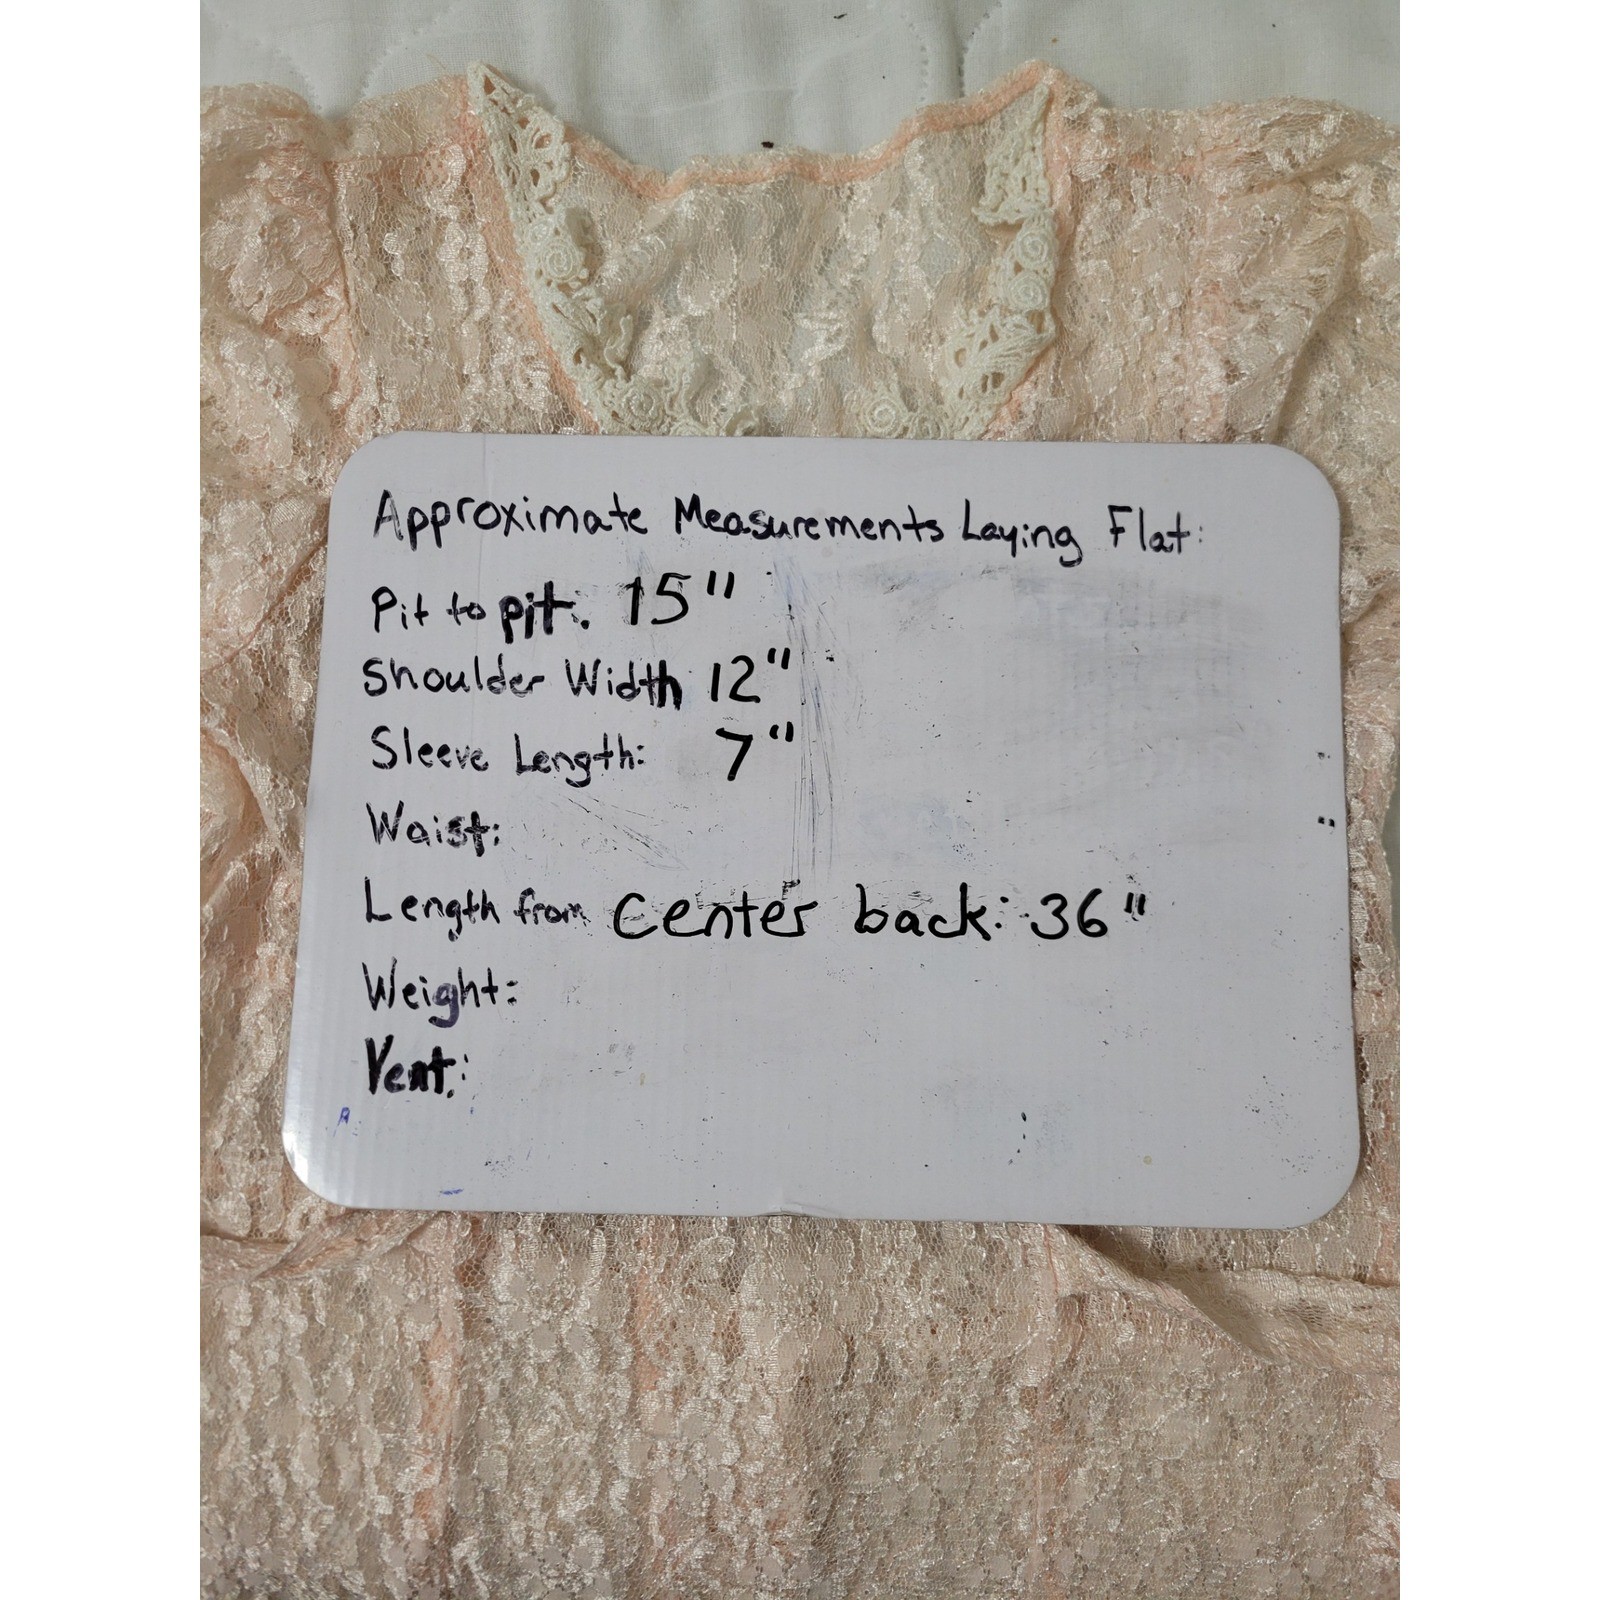 Approximate Measurements Laying Flat:
Pit to pit: 15"
Shoulder Width 12"
Sleeve Length: 7"
Waist:
Length from Center back: 36"
Weight:
Vent: